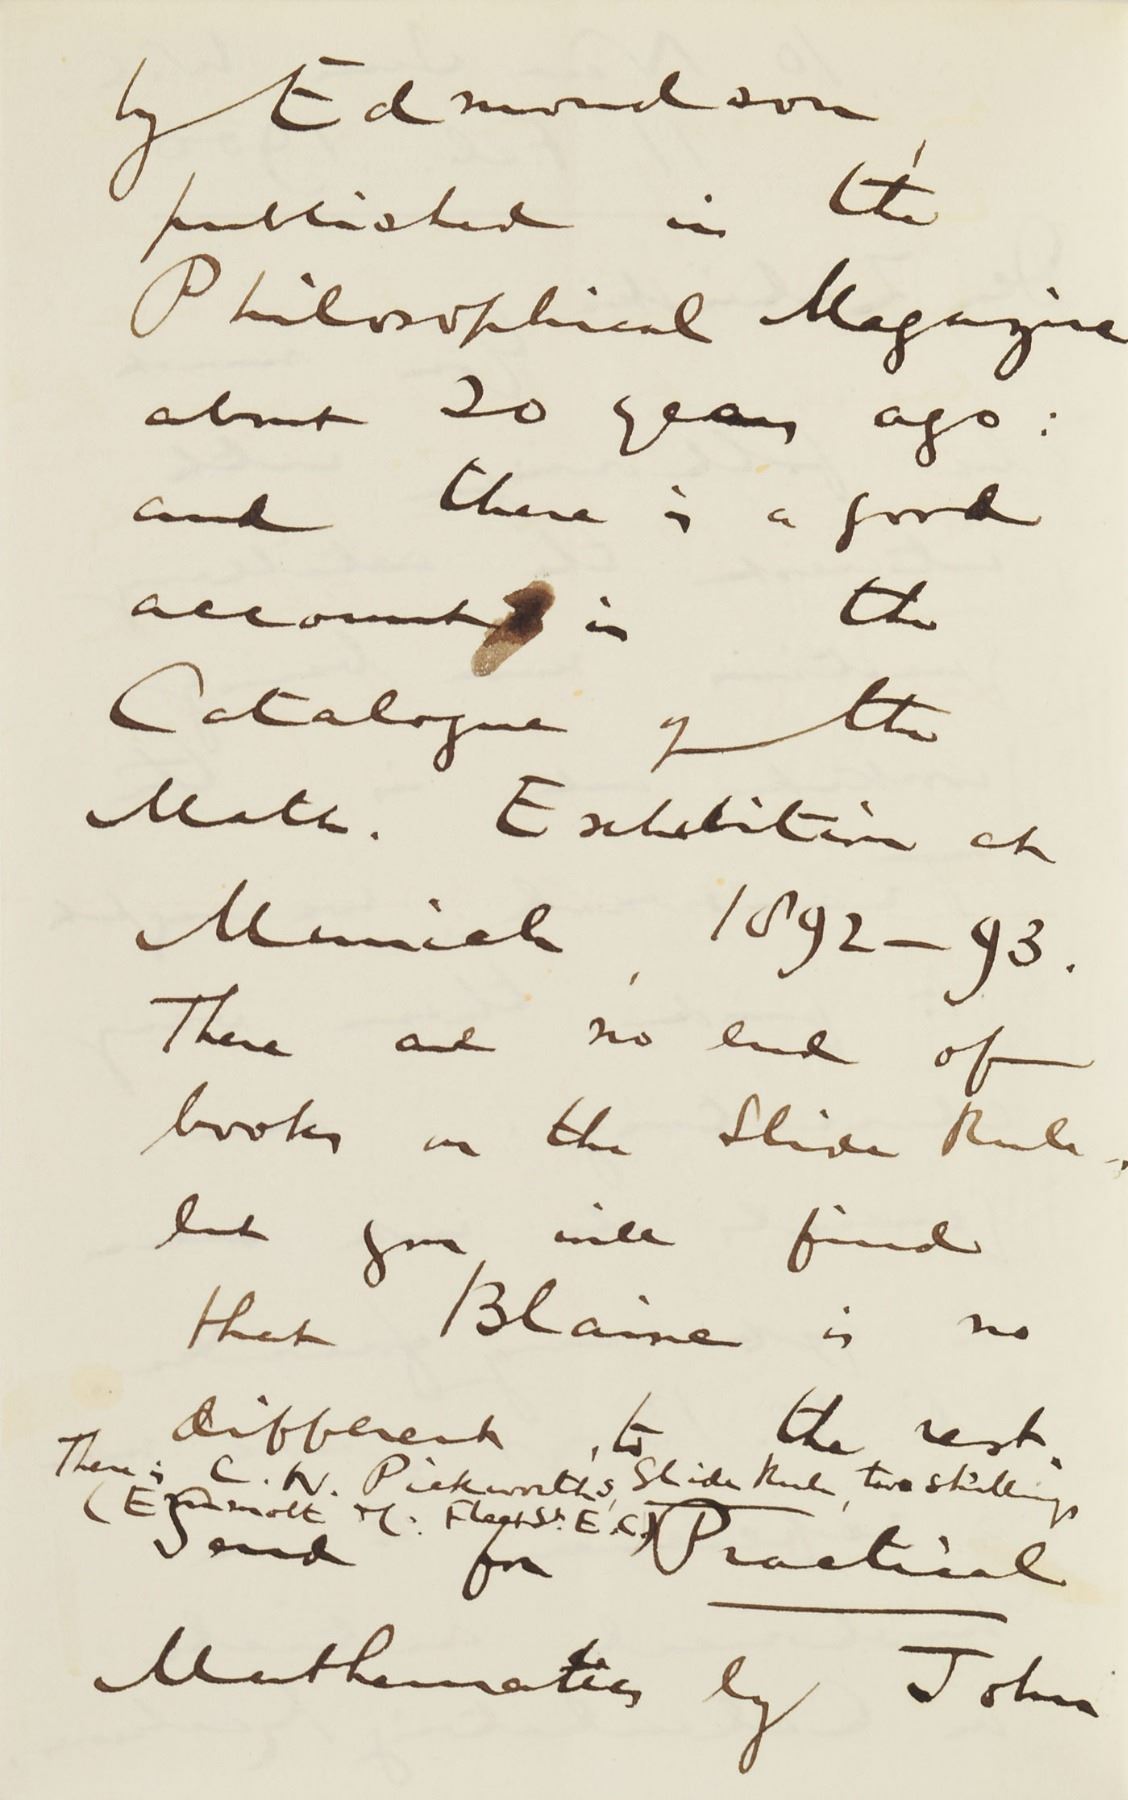 by Edmondson,
published in the
Philosophical Magazine
about 20 years ago:
and there is a good
account in the
Catalogue of the
Math. Exhibition at
Munich, 1892–93.
There are no end of
books on the Slide Rule,
but you will find
that Blaine is no
different to the rest.
There is C. N. Pickworth's, Slide Rule, two shillings
(Emmott &c. Fleet St. E.C.)
Send for Practical
Mathematics by John